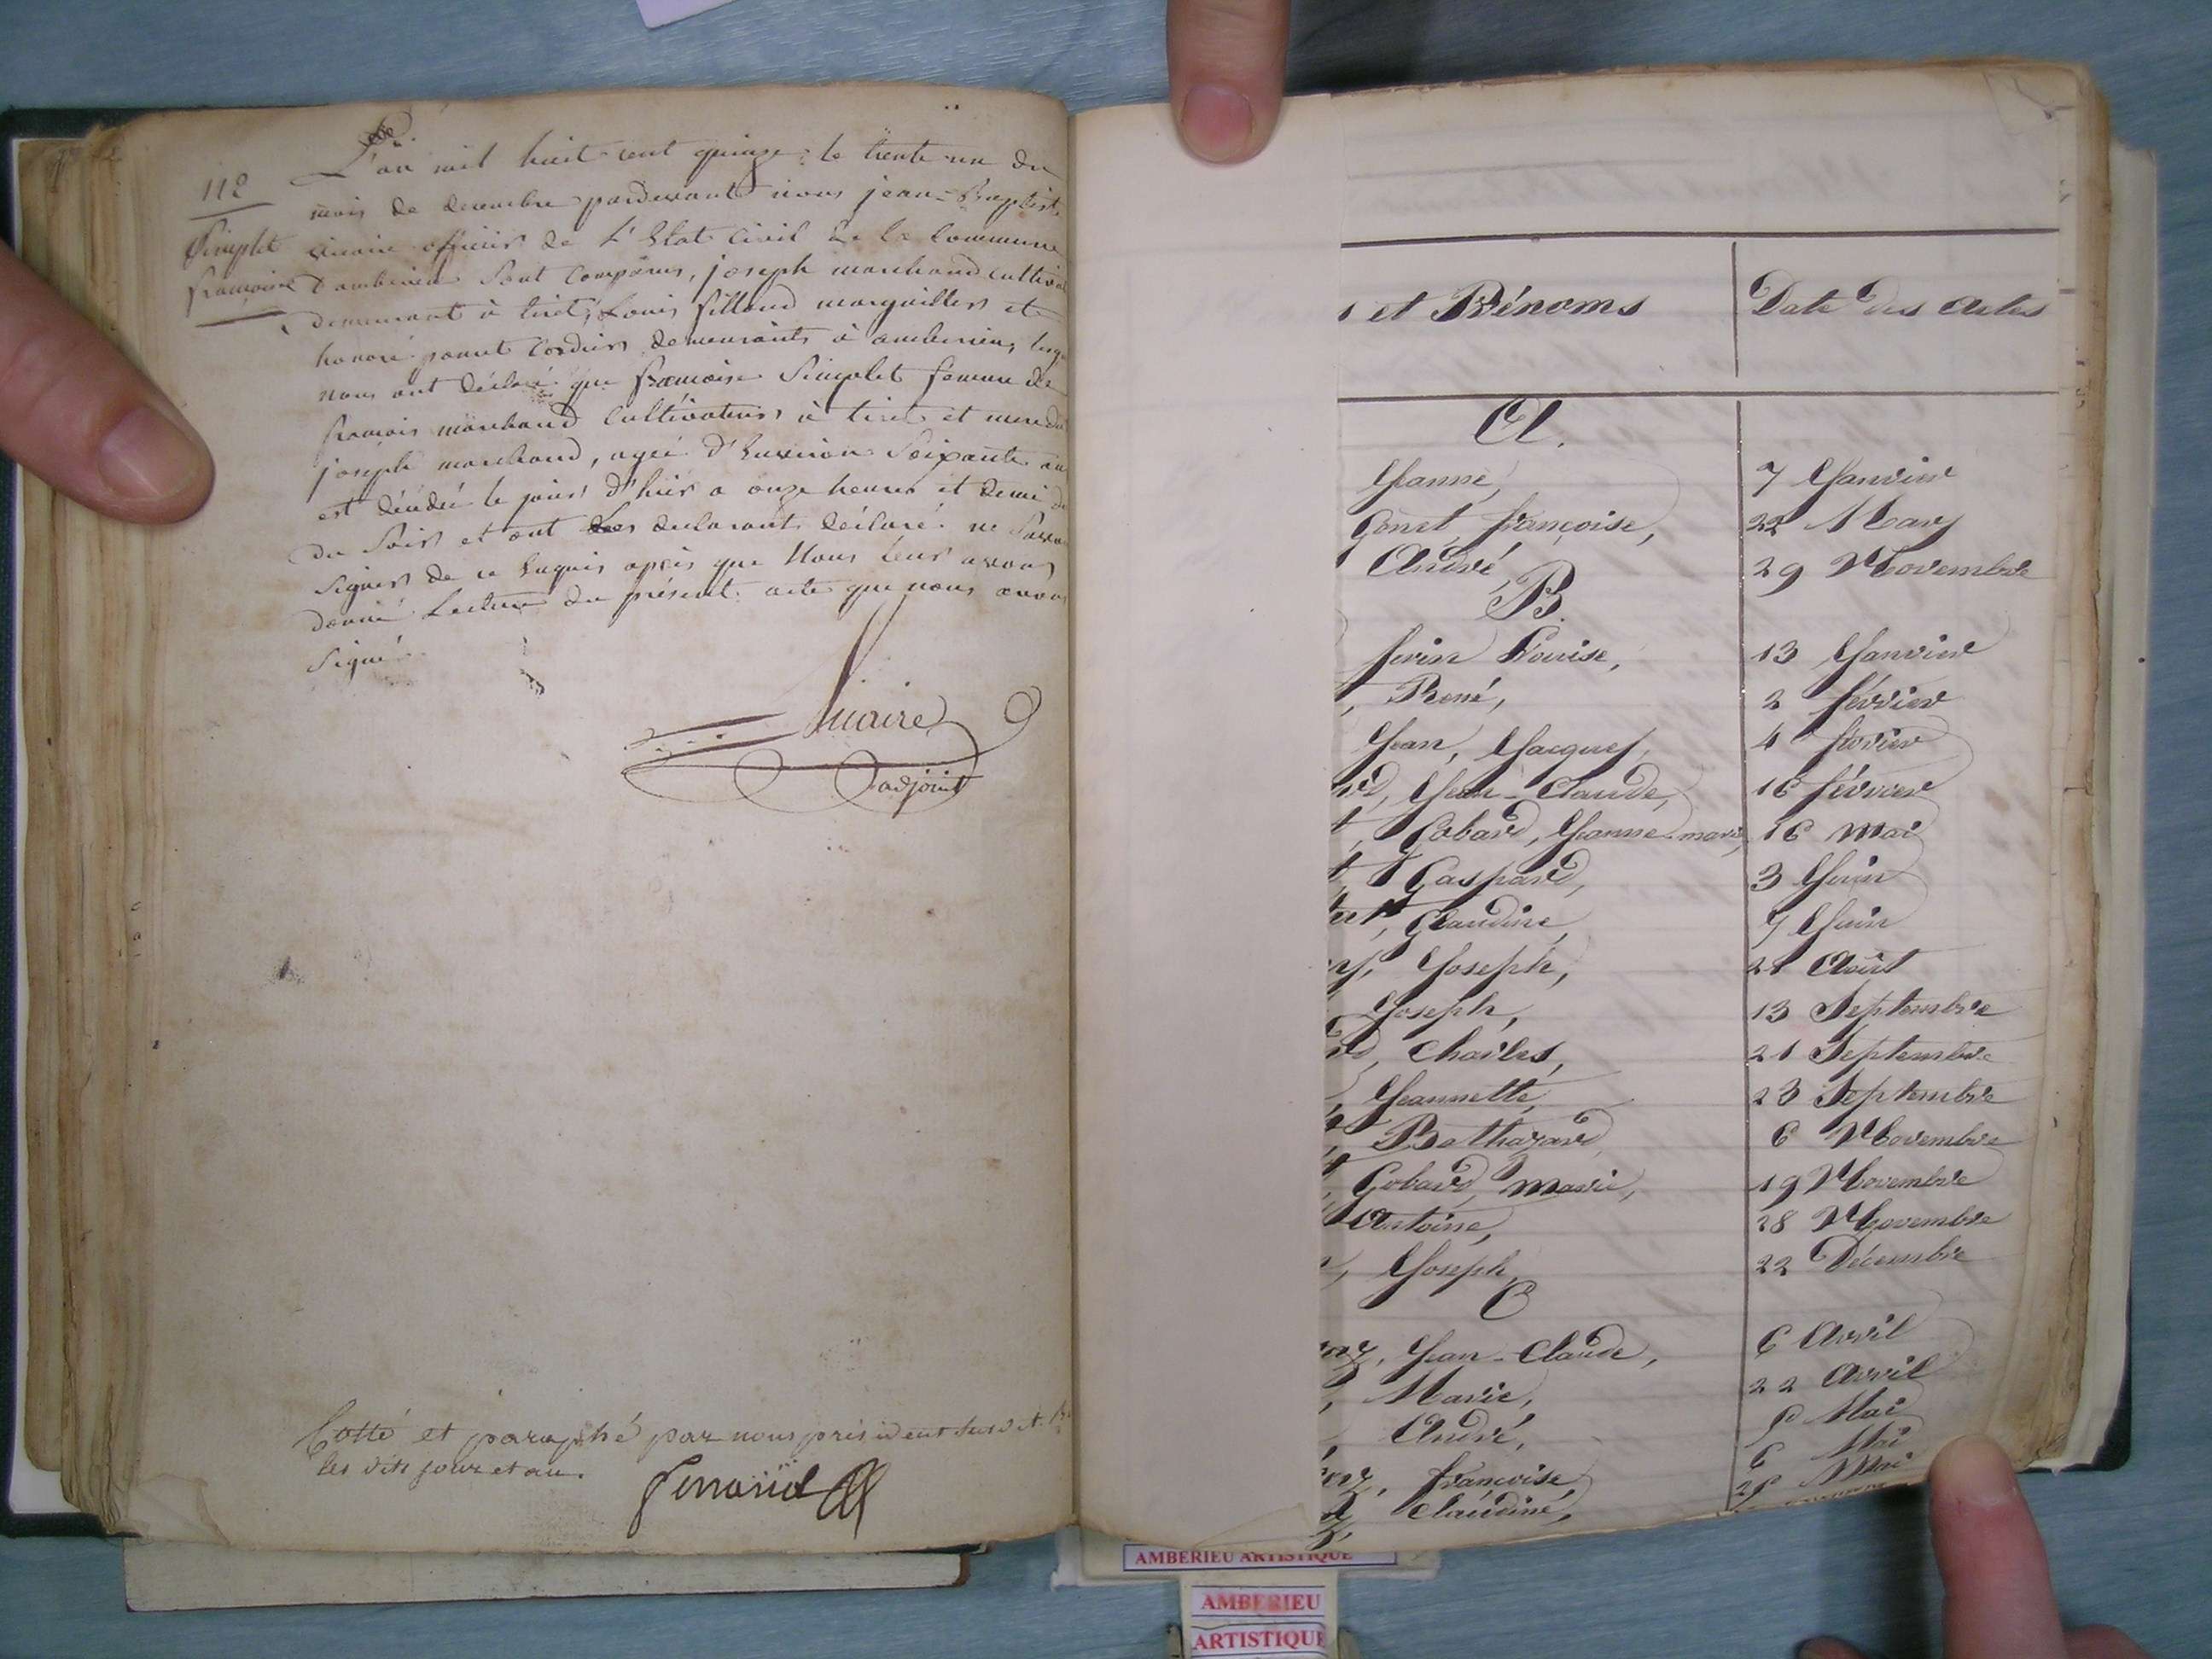 L'an mil huit cent quinze le trente un du
112
mois de decembre pardevant nous jean-Baptiste
Simplet
officier de L'Etat Civil de la Commune
francoise
d'amberieu Sont Comparus, joseph marchand cultiva
demeurant à tiret, Louis filloud marguillier et
honoré cordier demeurants à amberieu, lesqu
nous ont déclaré que francoise Simplet femme de
francois marchand Cultivateur à tiret et mere du
joseph marchand, agée d'Environ Soixante an
est décédée le jour d'hier a onze heures et demi
du Soir et ont Les declarants déclaré ne Savo
signer de ce Enquis après que Nous leur avons
donné Lecture du présent acte que nous avons
Signé
adjoint
Cotté et paraphé par nous président susdit
les dits jour et an.
s et Prénoms
Date des Actes
A.
Jeanne, 7 Janvier
Genet, françoise, 22 Mars
André, 29 Novembre
B.
Louise, 13 Janvier
, René, 2 février
Jean, Jacques, 4 février
rd, Jean-Claude, 16 février
t, Gobard, Jeanne-marie, 16 mai
t, Gaspard, 3 Juin
et, Claudine, 7 Juin
Joseph, 21 Août
Joseph, 13 Septembre
rd, Charles, 21 Septembre
, Jeannette, 23 Septembre
Balthazard, 6 Novembre
t, Gobard, Marie, 19 Novembre
Antoine, 28 Novembre
Joseph, 22 Décembre
C
Jean-Claude, 6 Avril
, Marie, 22 Avril
, André, Mai
françoise, 6 Mai
Claudine, Mai
AMBERIEU ARTISTIQUE
AMBERIEU
ARTISTIQUE